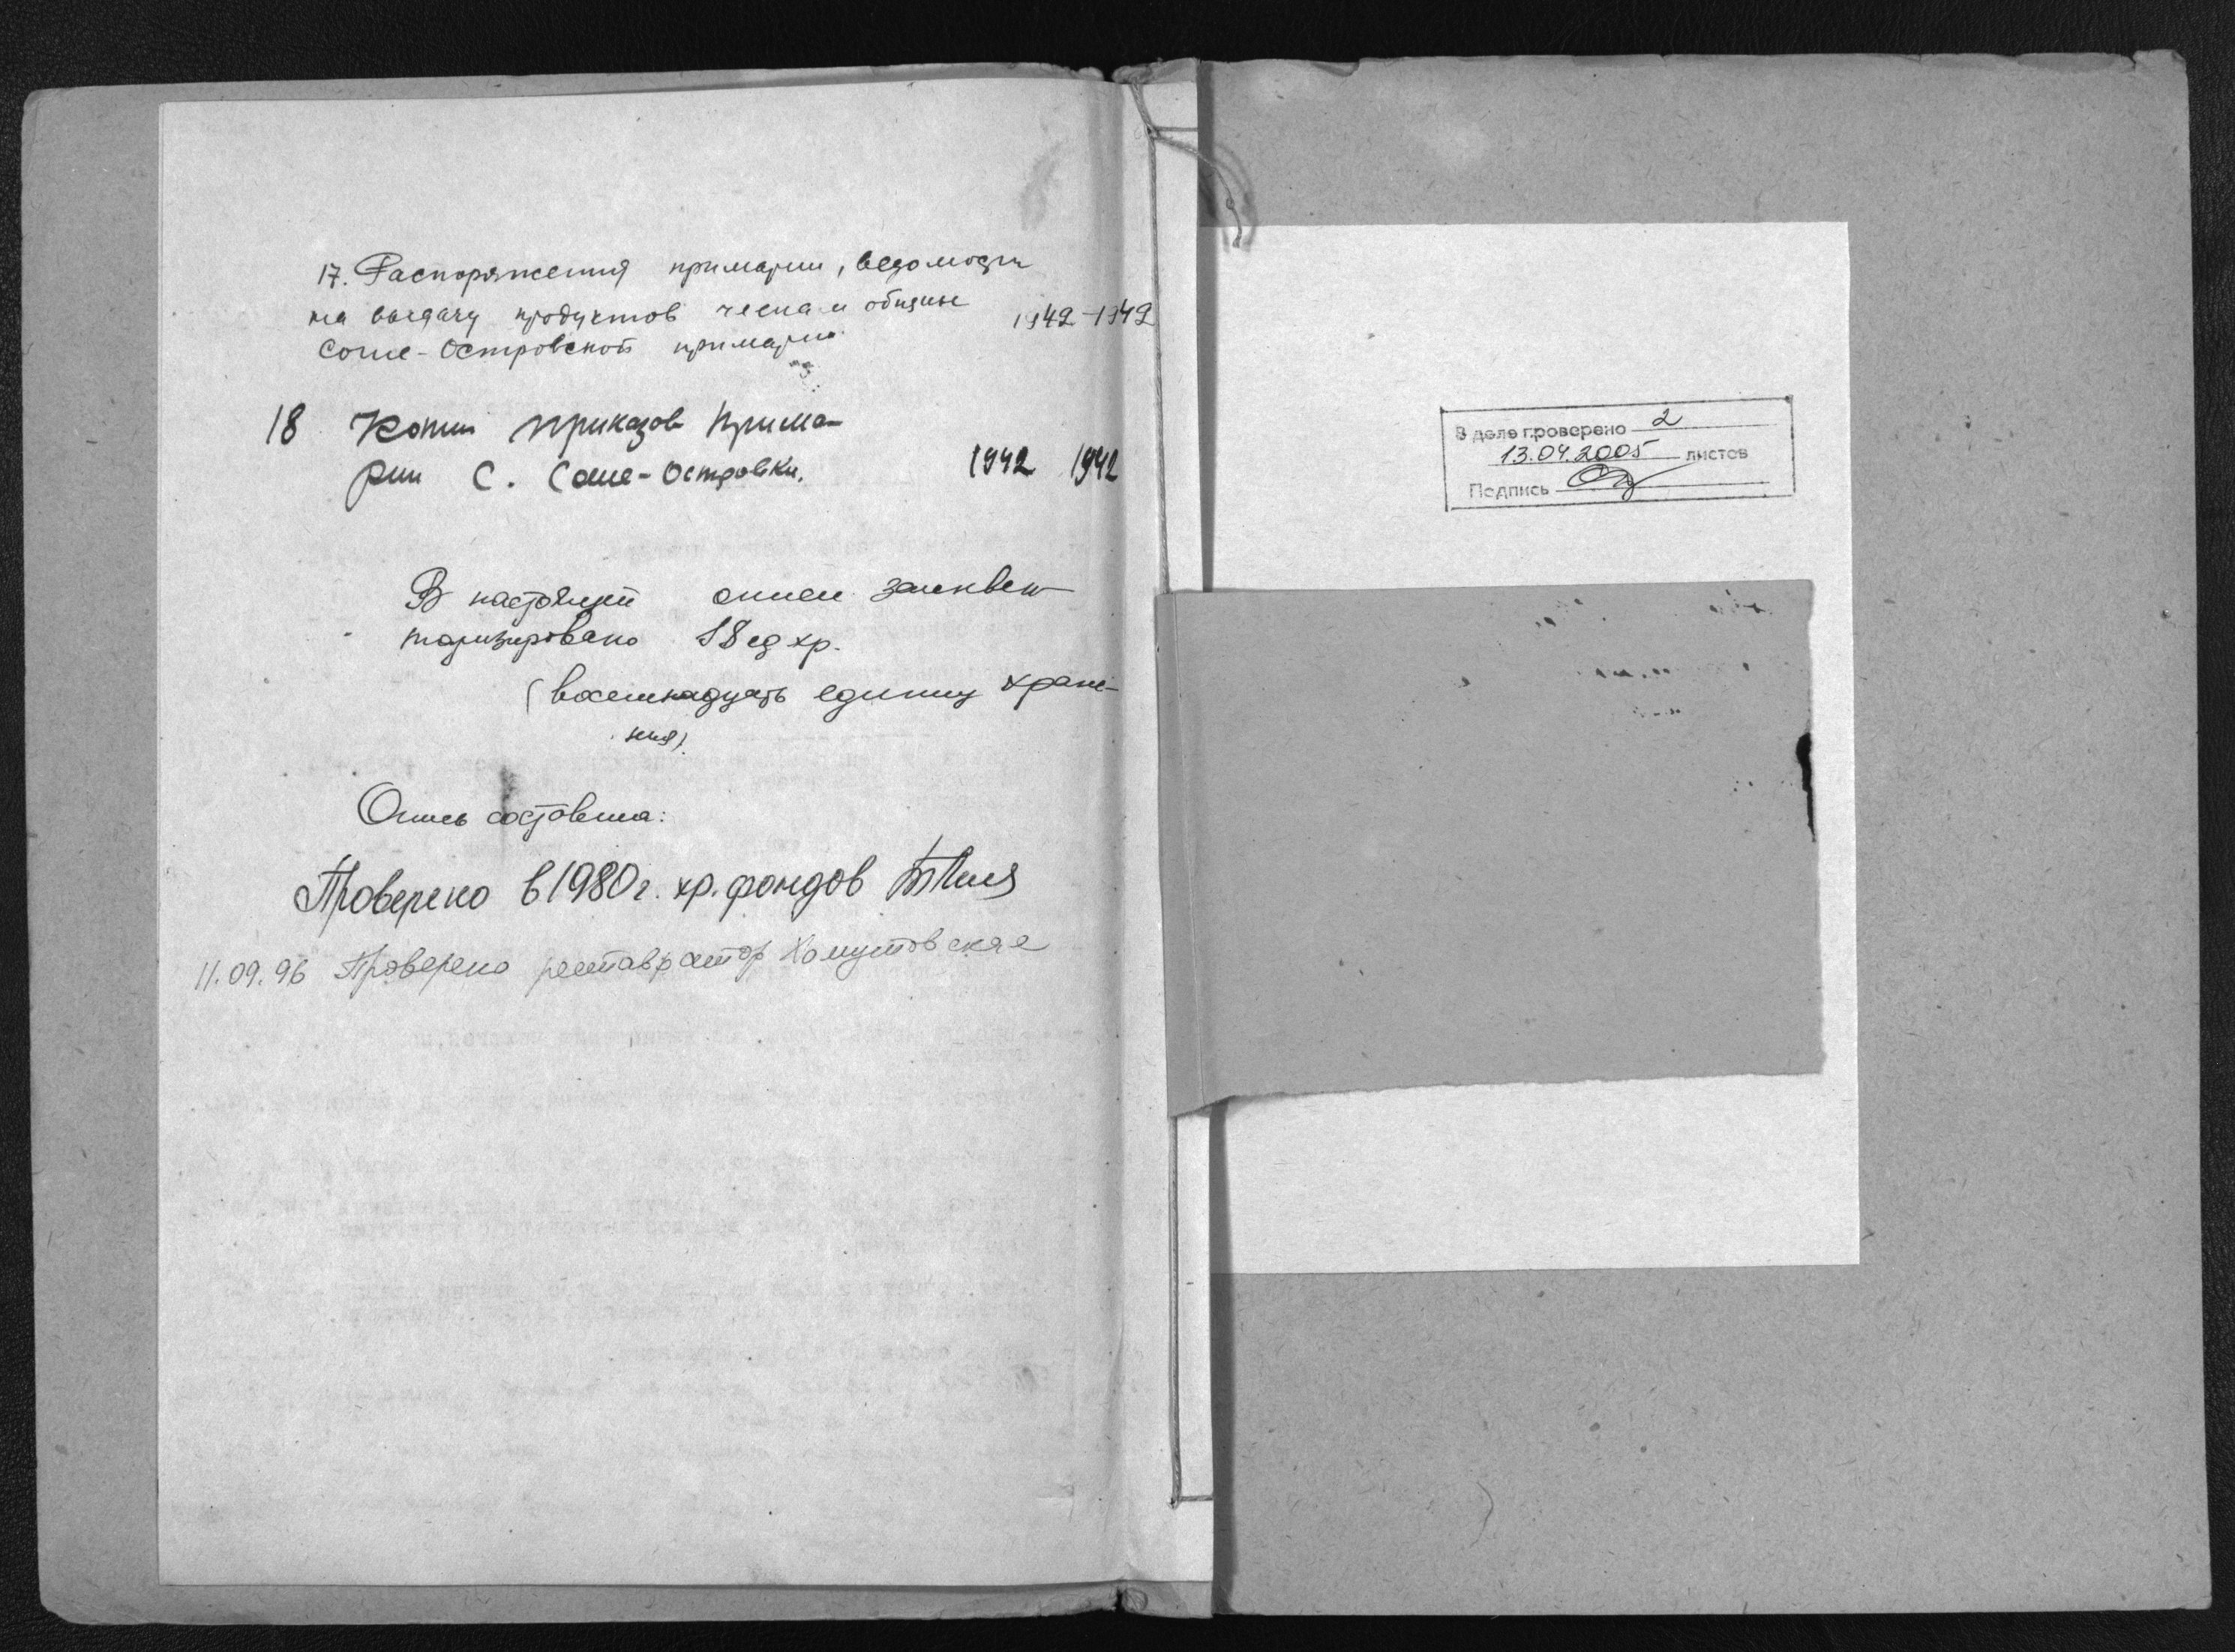 17. Распоряжения примарии, ведомости
на выдачу продуктов членам общины 1942-1942
Соше-Островской примарии
18 Копии приказов Прима-
рии с. Соше-Островки. 1942 1942
В настоящей описи заинвен-
таризировано 18 ед хр.
(восемнадцать единиц хране-
ния).
Опись составила:
Проверено в 1980 г. хр. фондов
11.09.96 Проверено реставратор Хомутовская
В деле проверено 2
13.04.2005 листов
Подпись